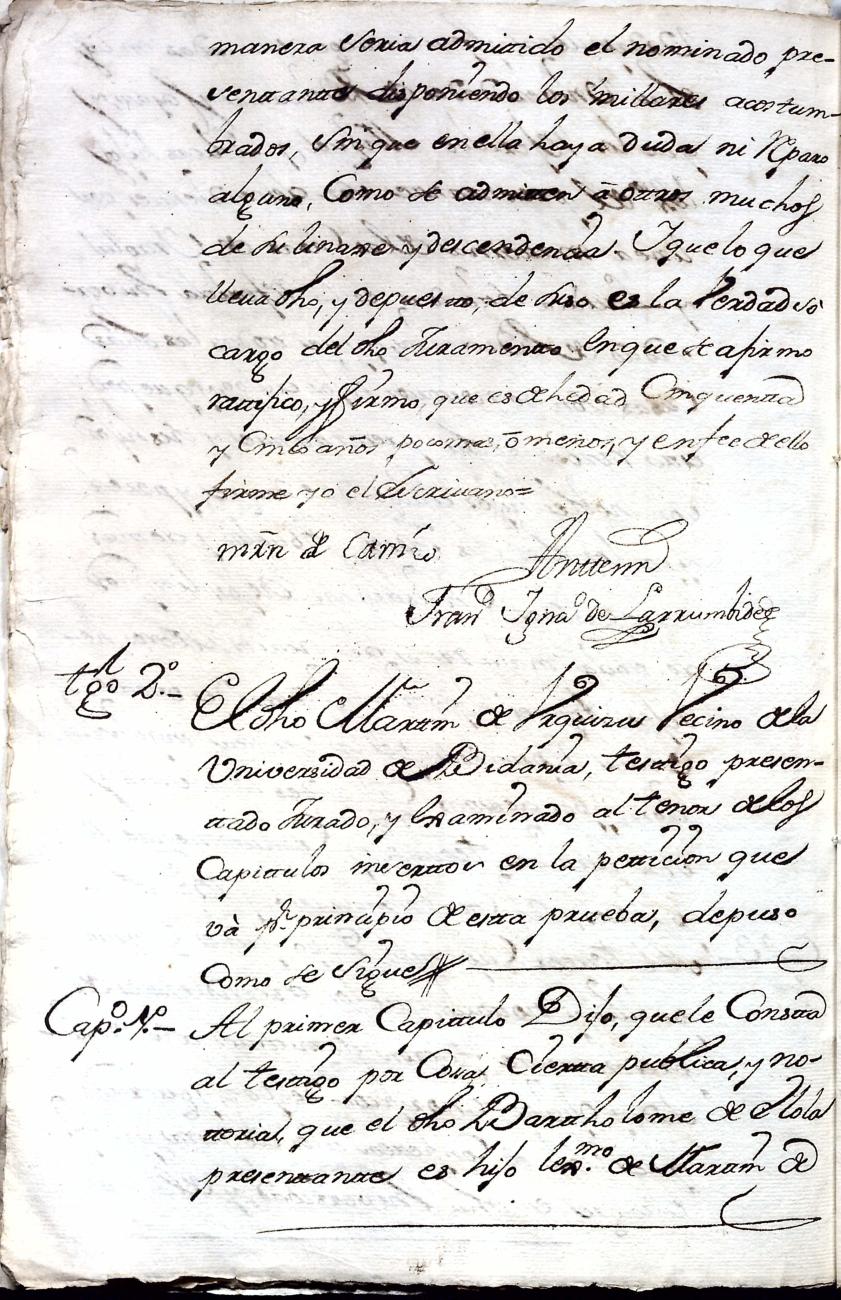 manera seria admitido el nominado pre-
sentante disponiendo los millares acostum-
brados, sin que en ella haya duda ni Rparo
alguno, Como se admiten â otros muchos
de su linaxe y descendencia Y que lo que
lleva dho, y depuesto, de suso es la Verdad sô
cargo del dho Juramento En que se afirmo
rattifico, y firmo, que es de hedad Cinquentta
y Cinco años poco mas, ô menos, y en fee de ello
firme yo el Escrivano=
mrn de
Anttemi
Franco Ignao de Larrumbide
tgo 2o.-
El dho Marttin de Vrquizu Vecino de la
Universidad de Bidania, testigo presen-
ttado Jurado, y Examinado al tenor de los
Capittulos inserttos en la petticion que
và pr principio de esta prueba, depuso
Como se sigue
Capo. 1o.-
Al primer Capittulo Dijo, que le Constta
al testigo por Cosa, Cierta publica, y no-
ttoria, que el dho Barttholome de Olola
presentante es hijo lexmo. de Marttin de